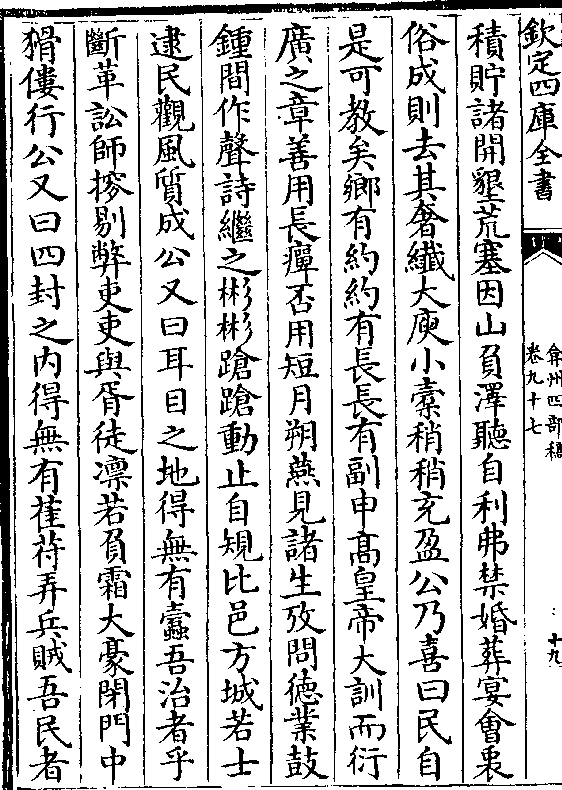 欽定四庫全書
弇州四部稿
卷九十七
十九
積貯諸開墾荒塞因山負澤聽自利弗禁婚葬宴會裒
俗成則去其奢纖大庾小橐稍稍充盈公乃喜曰民自
是可教矣鄉有約約有長長有副申高皇帝大訓而衍
廣之章善用長癉否用短月朔燕見諸生攷問德業鼓
鍾間作聲詩繼之彬彬蹌蹌動止自規比邑方城若士
逮民觀風質成公又曰耳目之地得無有蠹吾治者乎
斷革訟師搒剔弊吏吏與胥徒凛若負霜大豪閉門中
猾僂行公又曰四封之内得無有萑苻弄兵賊吾民者